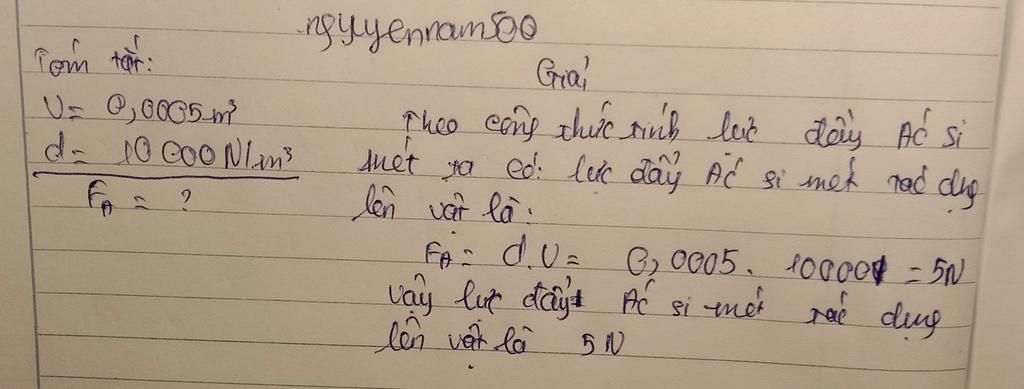 nguyennam500
Tóm tắt:
Giải
V= 0,0005m³
d= 10 000N/m³
F_A = ?
Theo công thức tính lực đẩy Ác si
mét ta có: lực đẩy Ác si mét tác dụng
lên vật là:
F_A= d.V= 0,0005. 10000 = 5N
Vậy lực đẩy Ác si mét tác dụng
lên vật là 5N